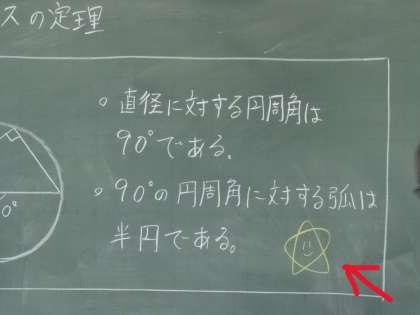 スの定理
○ 直径に対する円周角は
90°である。
○ 90°の円周角に対する弧は
半円である。
0°